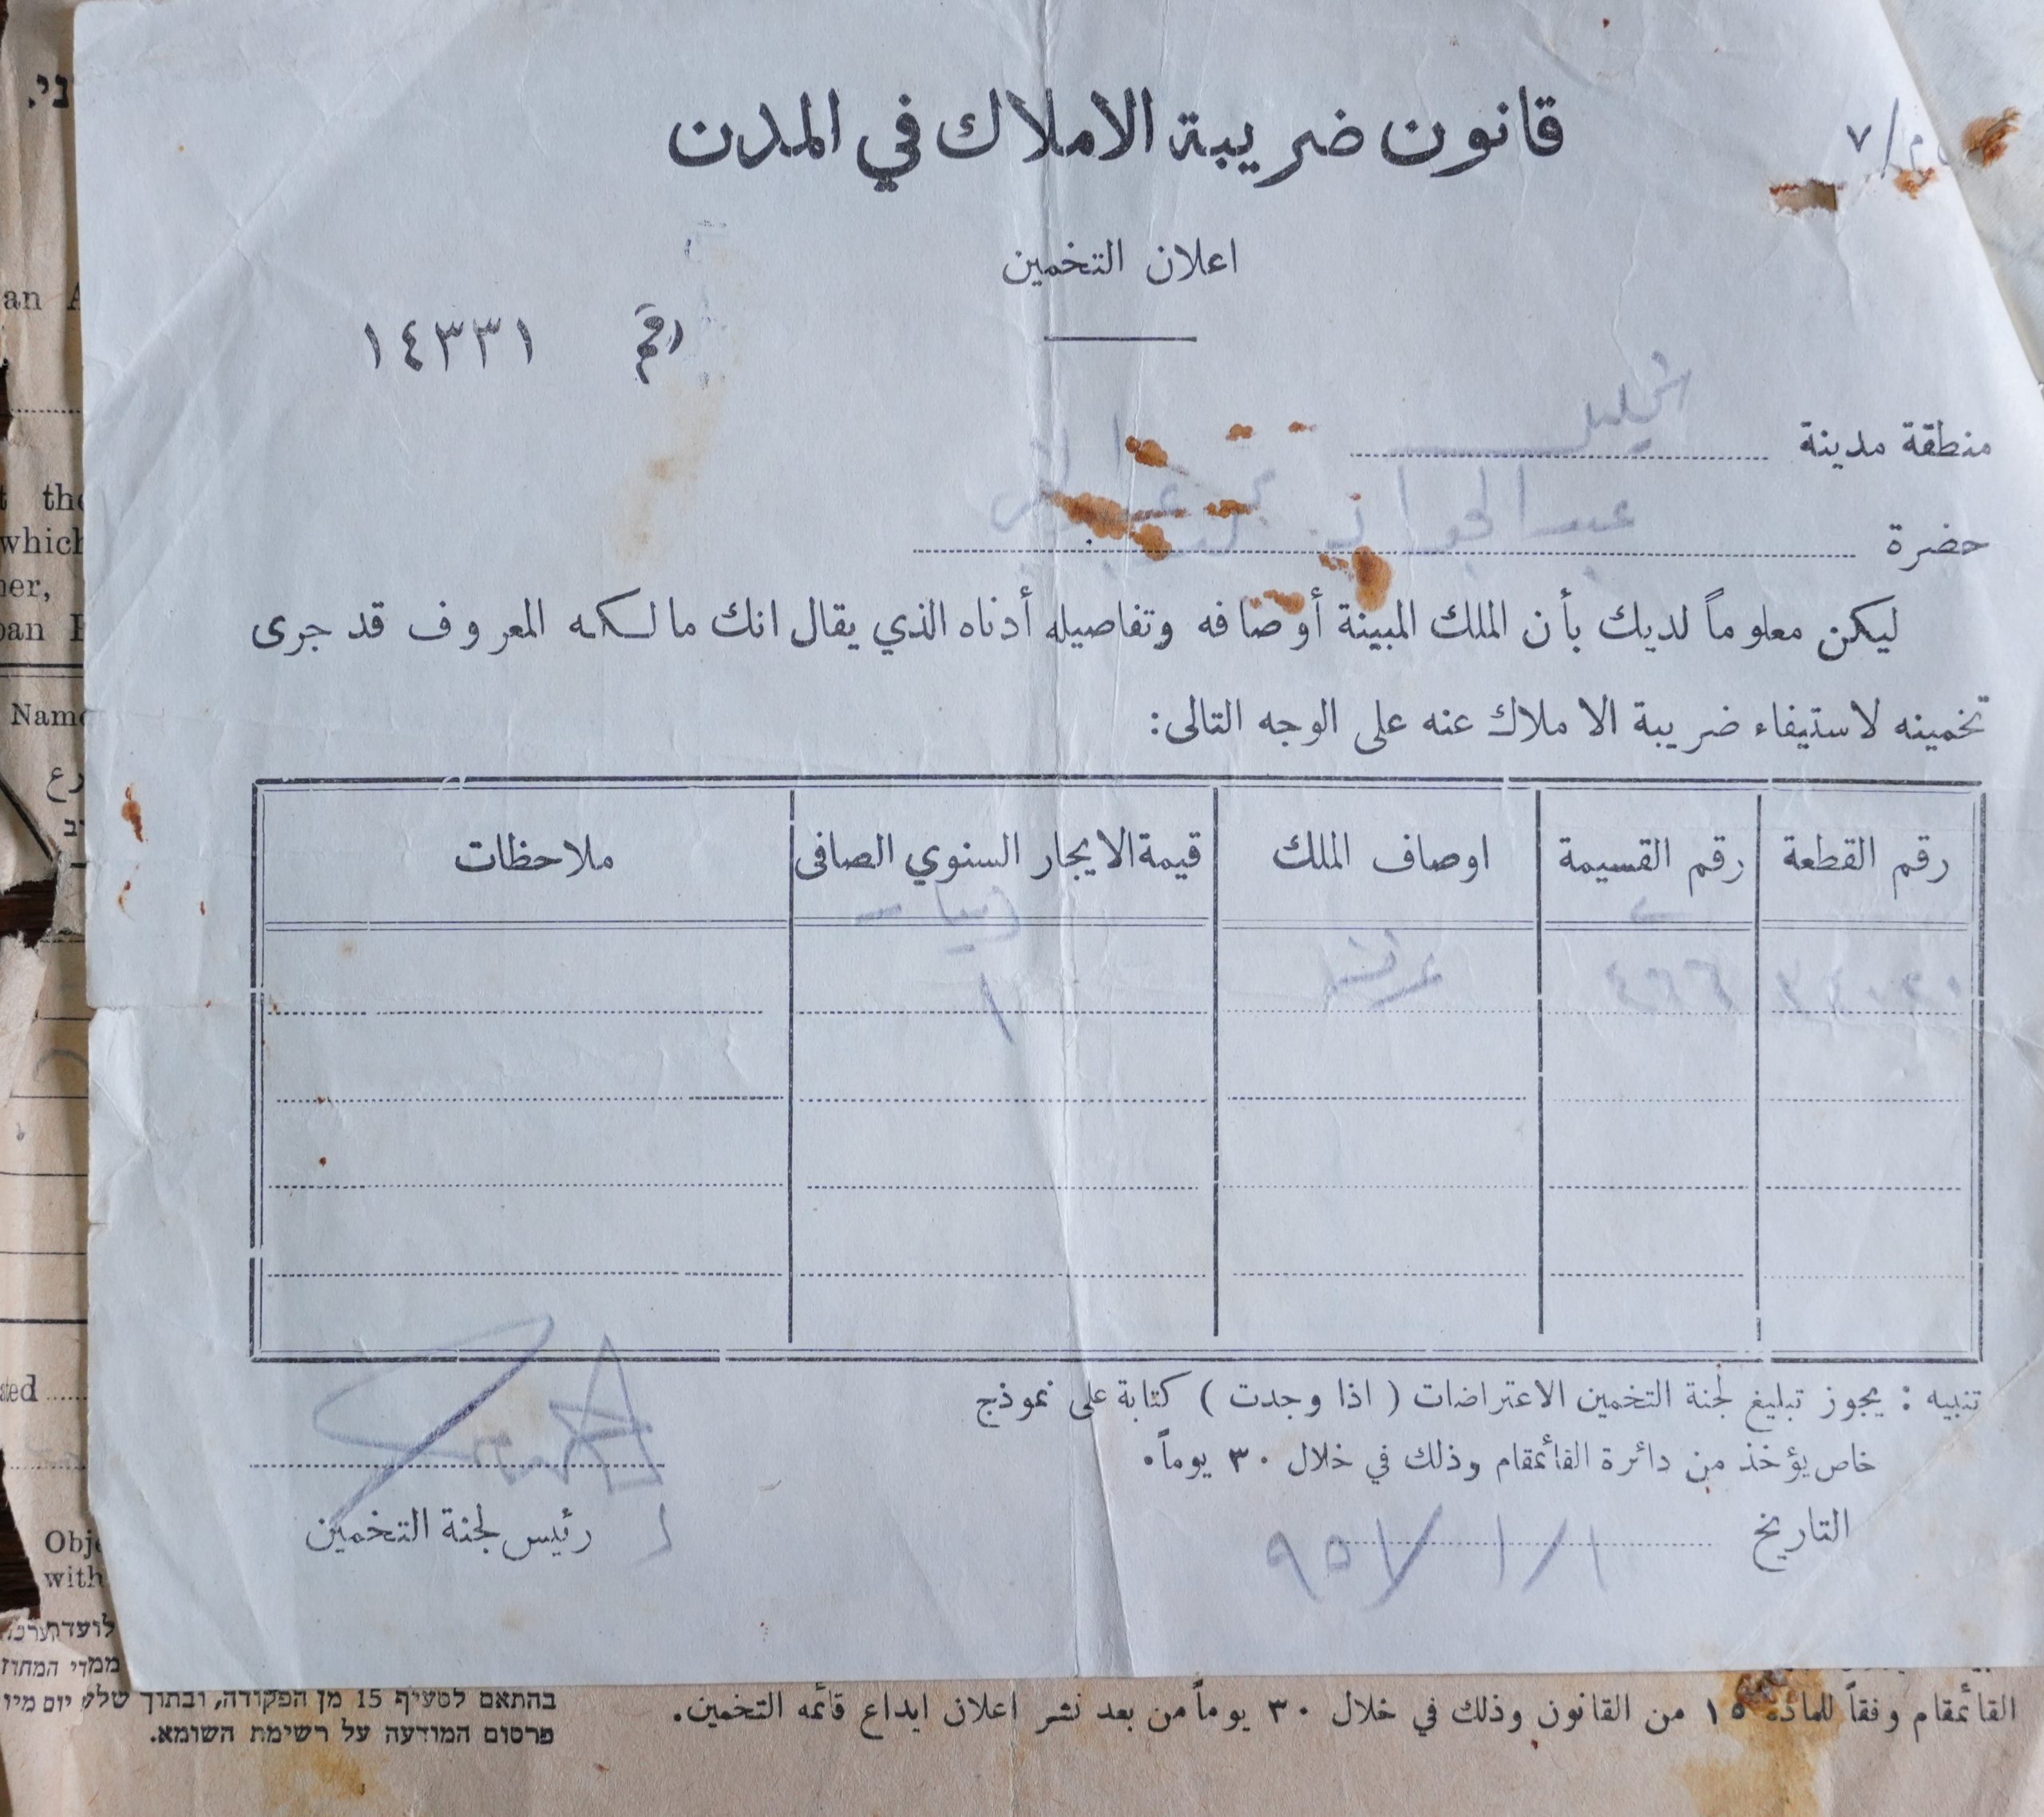 قانون ضريبة الاملاك في المدن
م/٧
اعلان التخمين
رقم ١٤٣٣١
منطقة مدينة الخليل
حضرة عبد الجواد
ليكن معلوماً لديك بأن الملك المبينة أوصافه وتفاصيله أدناه الذي يقال انك مالكه المعروف قد جرى
تخمينه لاستيفاء ضريبة الاملاك عنه على الوجه التالى:
رقم القطعة رقم القسيمة اوصاف الملك قيمة الايجار السنوي الصافى ملاحظات
١
تنبيه : يجوز تبليغ لجنة التخمين الاعتراضات ( اذا وجدت ) كتابة على نموذج
خاص يؤخذ من دائرة القائمقام وذلك في خلال ٣٠ يوماً.
التاريخ ١/١/٩٥١
رئيس لجنة التخمين
القائمقام وفقاً للمادة ١٥ من القانون وذلك في خلال ٣٠ يوماً من بعد نشر اعلان ايداع قائمه التخمين.
ני.
an A
t the
which
ner,
ban
Name
رع
ated
Obje
with
לועדת
ממדי המחוז
בהתאם לסעיף 15 מן הפקודה, ובתוך שלש יום מיו
פרסום המודעה על רשימת השומא.